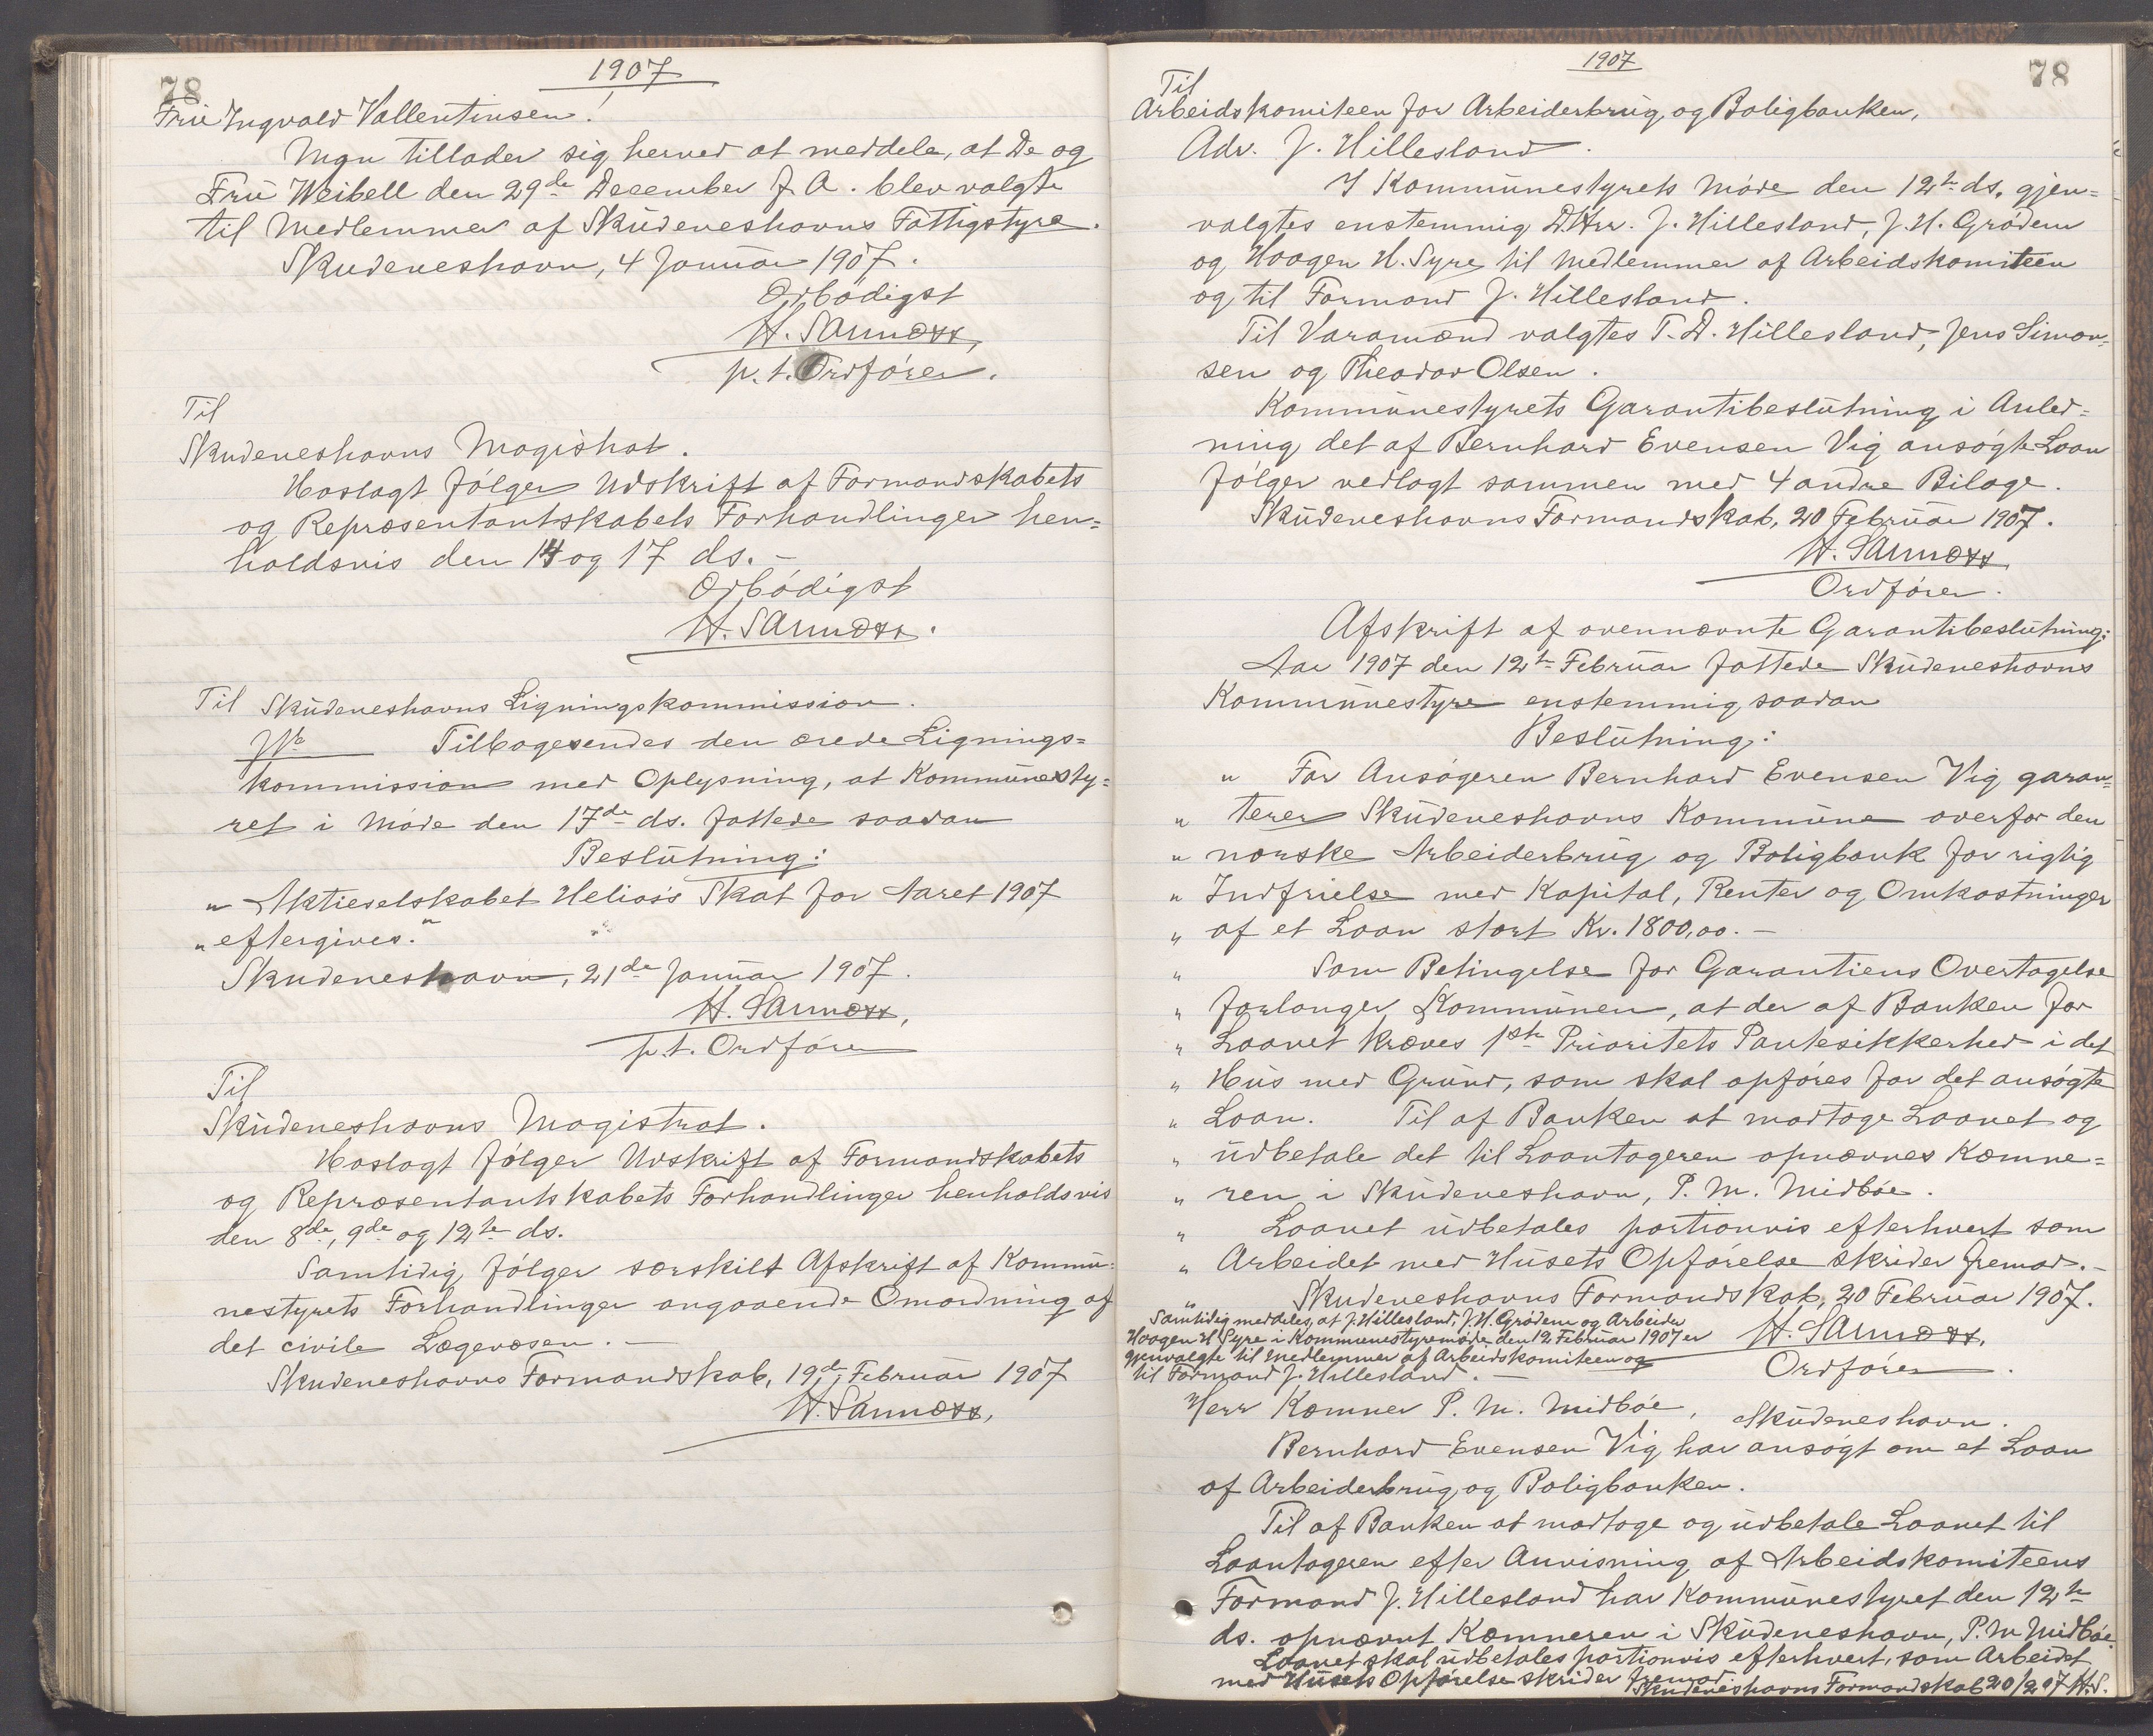 1907
78
Frü Ingvald Vallentinsen!
Man tillader sig herved at meddele, at De og
Frü Weibell den 29de December f. A. blev valgte
til Medlemmer af Skudeneshavns Fattigstyre.
Skudeneshavn, 4 Januar 1907.
Ørbødigst
H. Sannæss,
p. t. Ordfører.
Til
Skudeneshavns Magistrat.
Hoslagt følger Udskrift af Formandskabets
og Repræsentantskabets Forhandlinger hen=
holdsvis den 14 og 17 ds.—
Ørbødigst
H. Sannæss.
Til Skudeneshavns Ligningskommission.
Tilbagesendes den ærede Lignings=
kommission med Oplysning, at Kommunesty=
ret i Møde den 17de ds. fattede saadan
Beslutning:
" Aktieselskabet Helios's Skat for Aaret 1907
" eftergives."
Skudeneshavn, 21de Januar 1907.
H. Sannæss,
p. t. Ordfører
Til
Skudeneshavns Magistrat.
Hoslagt følger Udskrift af Formandskabets
og Repræsentantskabets Forhandlinger henholdsvis
den 8de, 9de og 12te ds.
Samtidig følger særskilt Afskrift af Kommu=
nestyrets Forhandlinger angaaende Omordning af
det civile Lægevæsen.—
Skudeneshavns Formandskab, 19de Februar 1907
H. Sannæss,
1907
78
Til
Arbeidskomiteen for Arbeiderbrug og Boligbanken,
Adr. J. Hillesland.
I Kommunestyrets Møde den 12te ds. gjen=
valgtes enstemmig D'Hrr. J. Hillesland, J. H. Grødem
og Haagen H. Syre til Medlemmer af Arbeidskomiteen
og til Formand J. Hillesland.
Til Varamænd valgtes T. D. Hillesland, Jens Simon=
sen og Theodor Olsen.
Kommunestyrets Garantibeslutning i Anled=
ning det af Bernhard Evensen Vig ansøgte Laan
følger vedlagt sammen med 4 andre Bilage.
Skudeneshavns Formandskab, 20 Februar 1907.
H. Sannæss
Ordfører.
Afskrift af ovennævnte Garantibeslutning:
Aar 1907 den 12te Februar fattede Skudeneshavns
Kommunestyre enstemmig saadan
Beslutning:
" For Ansøgeren Bernhard Evensen Vig garan=
" terer Skudeneshavns Kommune overfor den
" norske Arbeiderbrug og Boligbank for rigtig
" Indfrielse med Kapital, Renter og Omkostninger
" af et Laan stort Kr. 1800,00.—
" Som Betingelse for Garantiens Overtagelse
" forlanger Kommunen, at der af Banken for
" Laanet kræves 1ste Prioritets Pantesikkerhed i det
" Hus med Grund, som skal opføres for det ansøgte
" Laan. Til af Banken at modtage Laanet og
" udbetale det til Laantageren opnævnes Kæmne=
" ren i Skudeneshavn, P. M. Midbøe.
" Laanet udbetales portionvis efterhvert som
" Arbeidet med Husets Opførelse skrider fremad.—
" Skudeneshavns Formandskab, 20 Februar 1907.
Samtidig meddeles, at J. Hillesland, J. H. Grødem og Arbeider
Haagen H. Syre i Kommunestyremøde den 12 Februar 1907 er
gjenvalgte til Medlemmer af Arbeidskomiteen og
til Formand J. Hillesland.—
H. Sannæss,
Ordfører.
Herr Kæmner P. M. Midbøe, Skudeneshavn.
Bernhard Evensen Vig har ansøgt om et Laan
af Arbeiderbrug og Boligbanken.
Til af Banken at modtage og udbetale Laanet til
Laantageren efter Anvisning af Arbeidskomiteens
Formand J. Hillesland har Kommunestyret den 12te
ds. opnævnt Kæmneren i Skudeneshavn, P. M Midbøe.
Laanet skal udbetales portionvis efterhvert, som Arbeidet
med Husets Opførelse skrider fremad.
Skudeneshavns Formandskab 20/2 07 H. S.